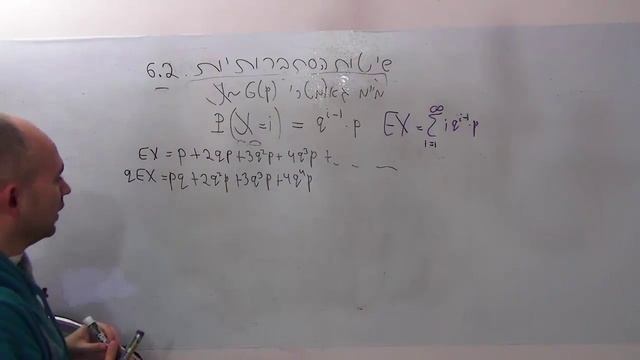 6.2 שיטות הסתברותיות
מ"מ גיאומטרי X~G(p)
P(X=i) = q^{i-1}·p   EX = \sum_{i=1}^{∞} i q^{i-1}·p
EX = p+2qp+3q²p+4q³p+...
qEX = pq+2q²p+3q³p+4q⁴p